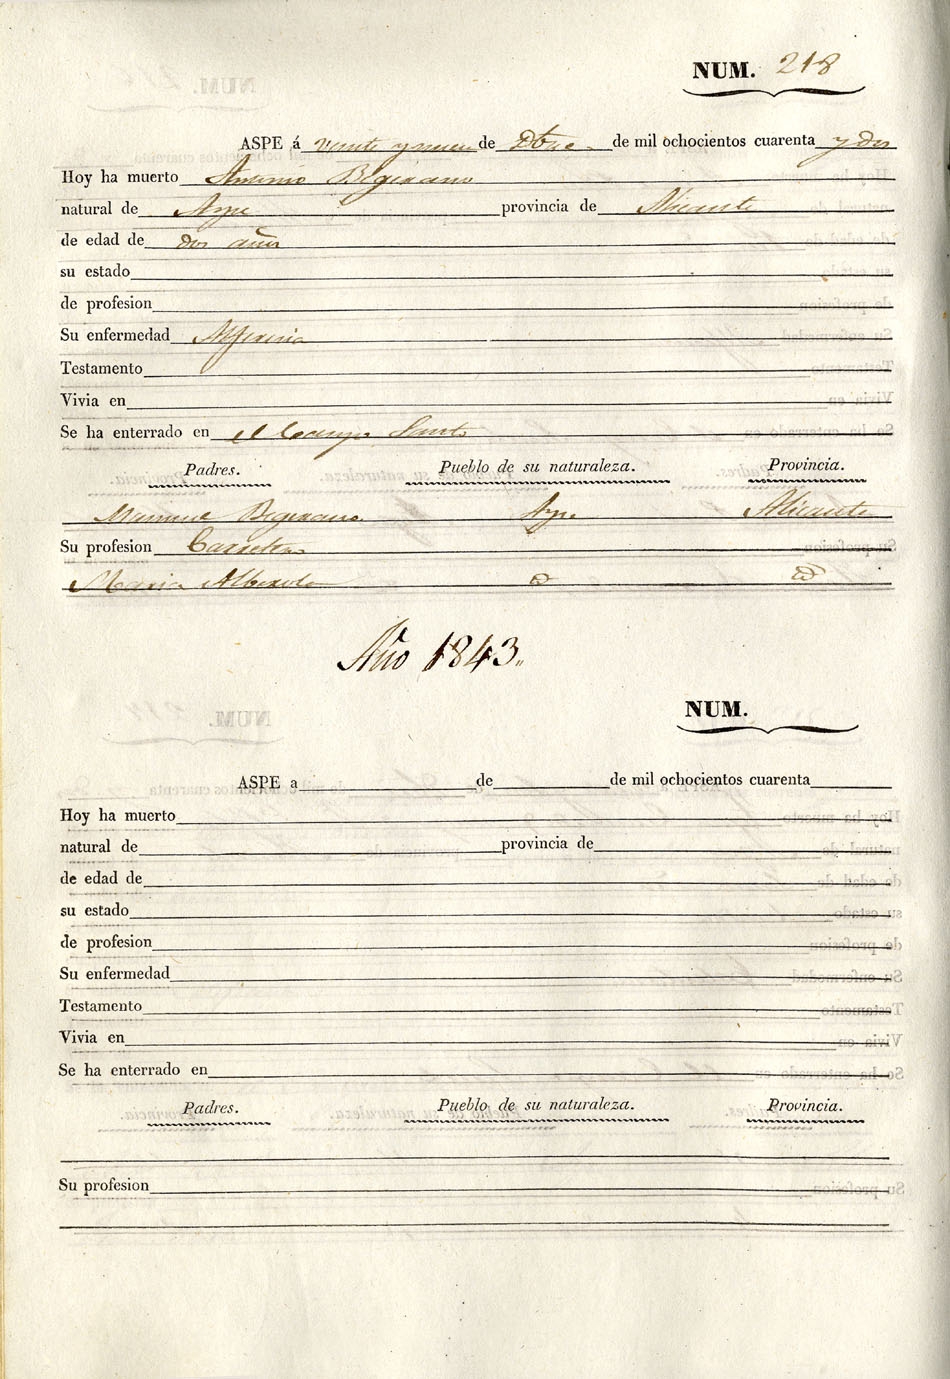 NUM. 218
ASPE á veinte y nueve de Dbre. de mil ochocientos cuarenta y dos
Hoy ha muerto Antonio Bejerano
natural de Aspe provincia de Alicante
de edad de dos años
su estado
de profesion
Su enfermedad Alferecia
Testamento
Vivia en
Se ha enterrado en el Campo Santo
Padres. Pueblo de su naturaleza. Provincia.
Manuel Bejerano Aspe Alicante
Su profesion Carretero
Maria Alberola
Año 1843.
NUM.
ASPE a de de mil ochocientos cuarenta
Hoy ha muerto
natural de provincia de
de edad de
su estado
de profesion
Su enfermedad
Testamento
Vivia en
Se ha enterrado en
Padres. Pueblo de su naturaleza. Provincia.
Su profesion